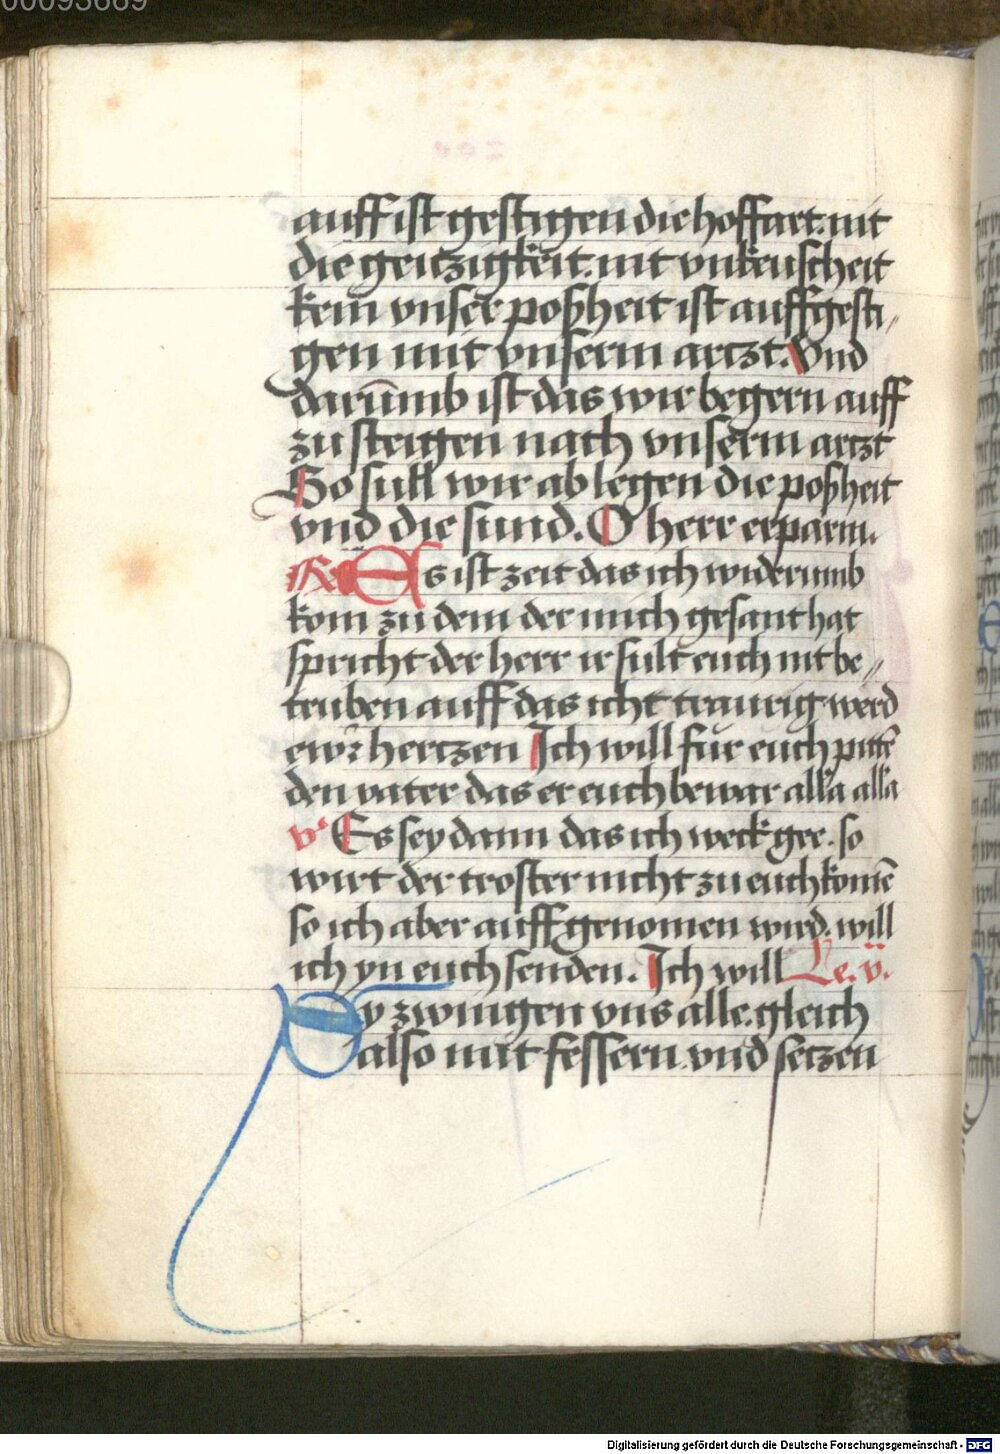 00093669
auff ist gestigen die hoffart. nit
die geitzigkeit. nit vnkeuscheit
kein vnser poßheit ist auffgesti〃
gen mit vnserm arczt. Vnd
darūmb ist das wir begern auff
zu steigen nach vnserm arczt
So süll wir ab legen die poßheit
vnd die sund. O herr erparm.
R Es ist zeit das ich widerumb
kom zu dem der mich gesant hat
spricht der herr ir sült euch nit be〃
truben auff das icht traurig werd
ewr hertzen Ich will für euch pittē
den vater das er euch bewar alla alla
v Es sey dann das ich weck gee. so
wirt der troster nicht zu euch komē
so ich aber auffgenomen wird. will
ich yn euch senden. Ich will Le. ij.
Dy zwingen vns alle. gleich
also mit fessern. vnd setzen
Digitalisierung gefördert durch die Deutsche Forschungsgemeinschaft - DFG